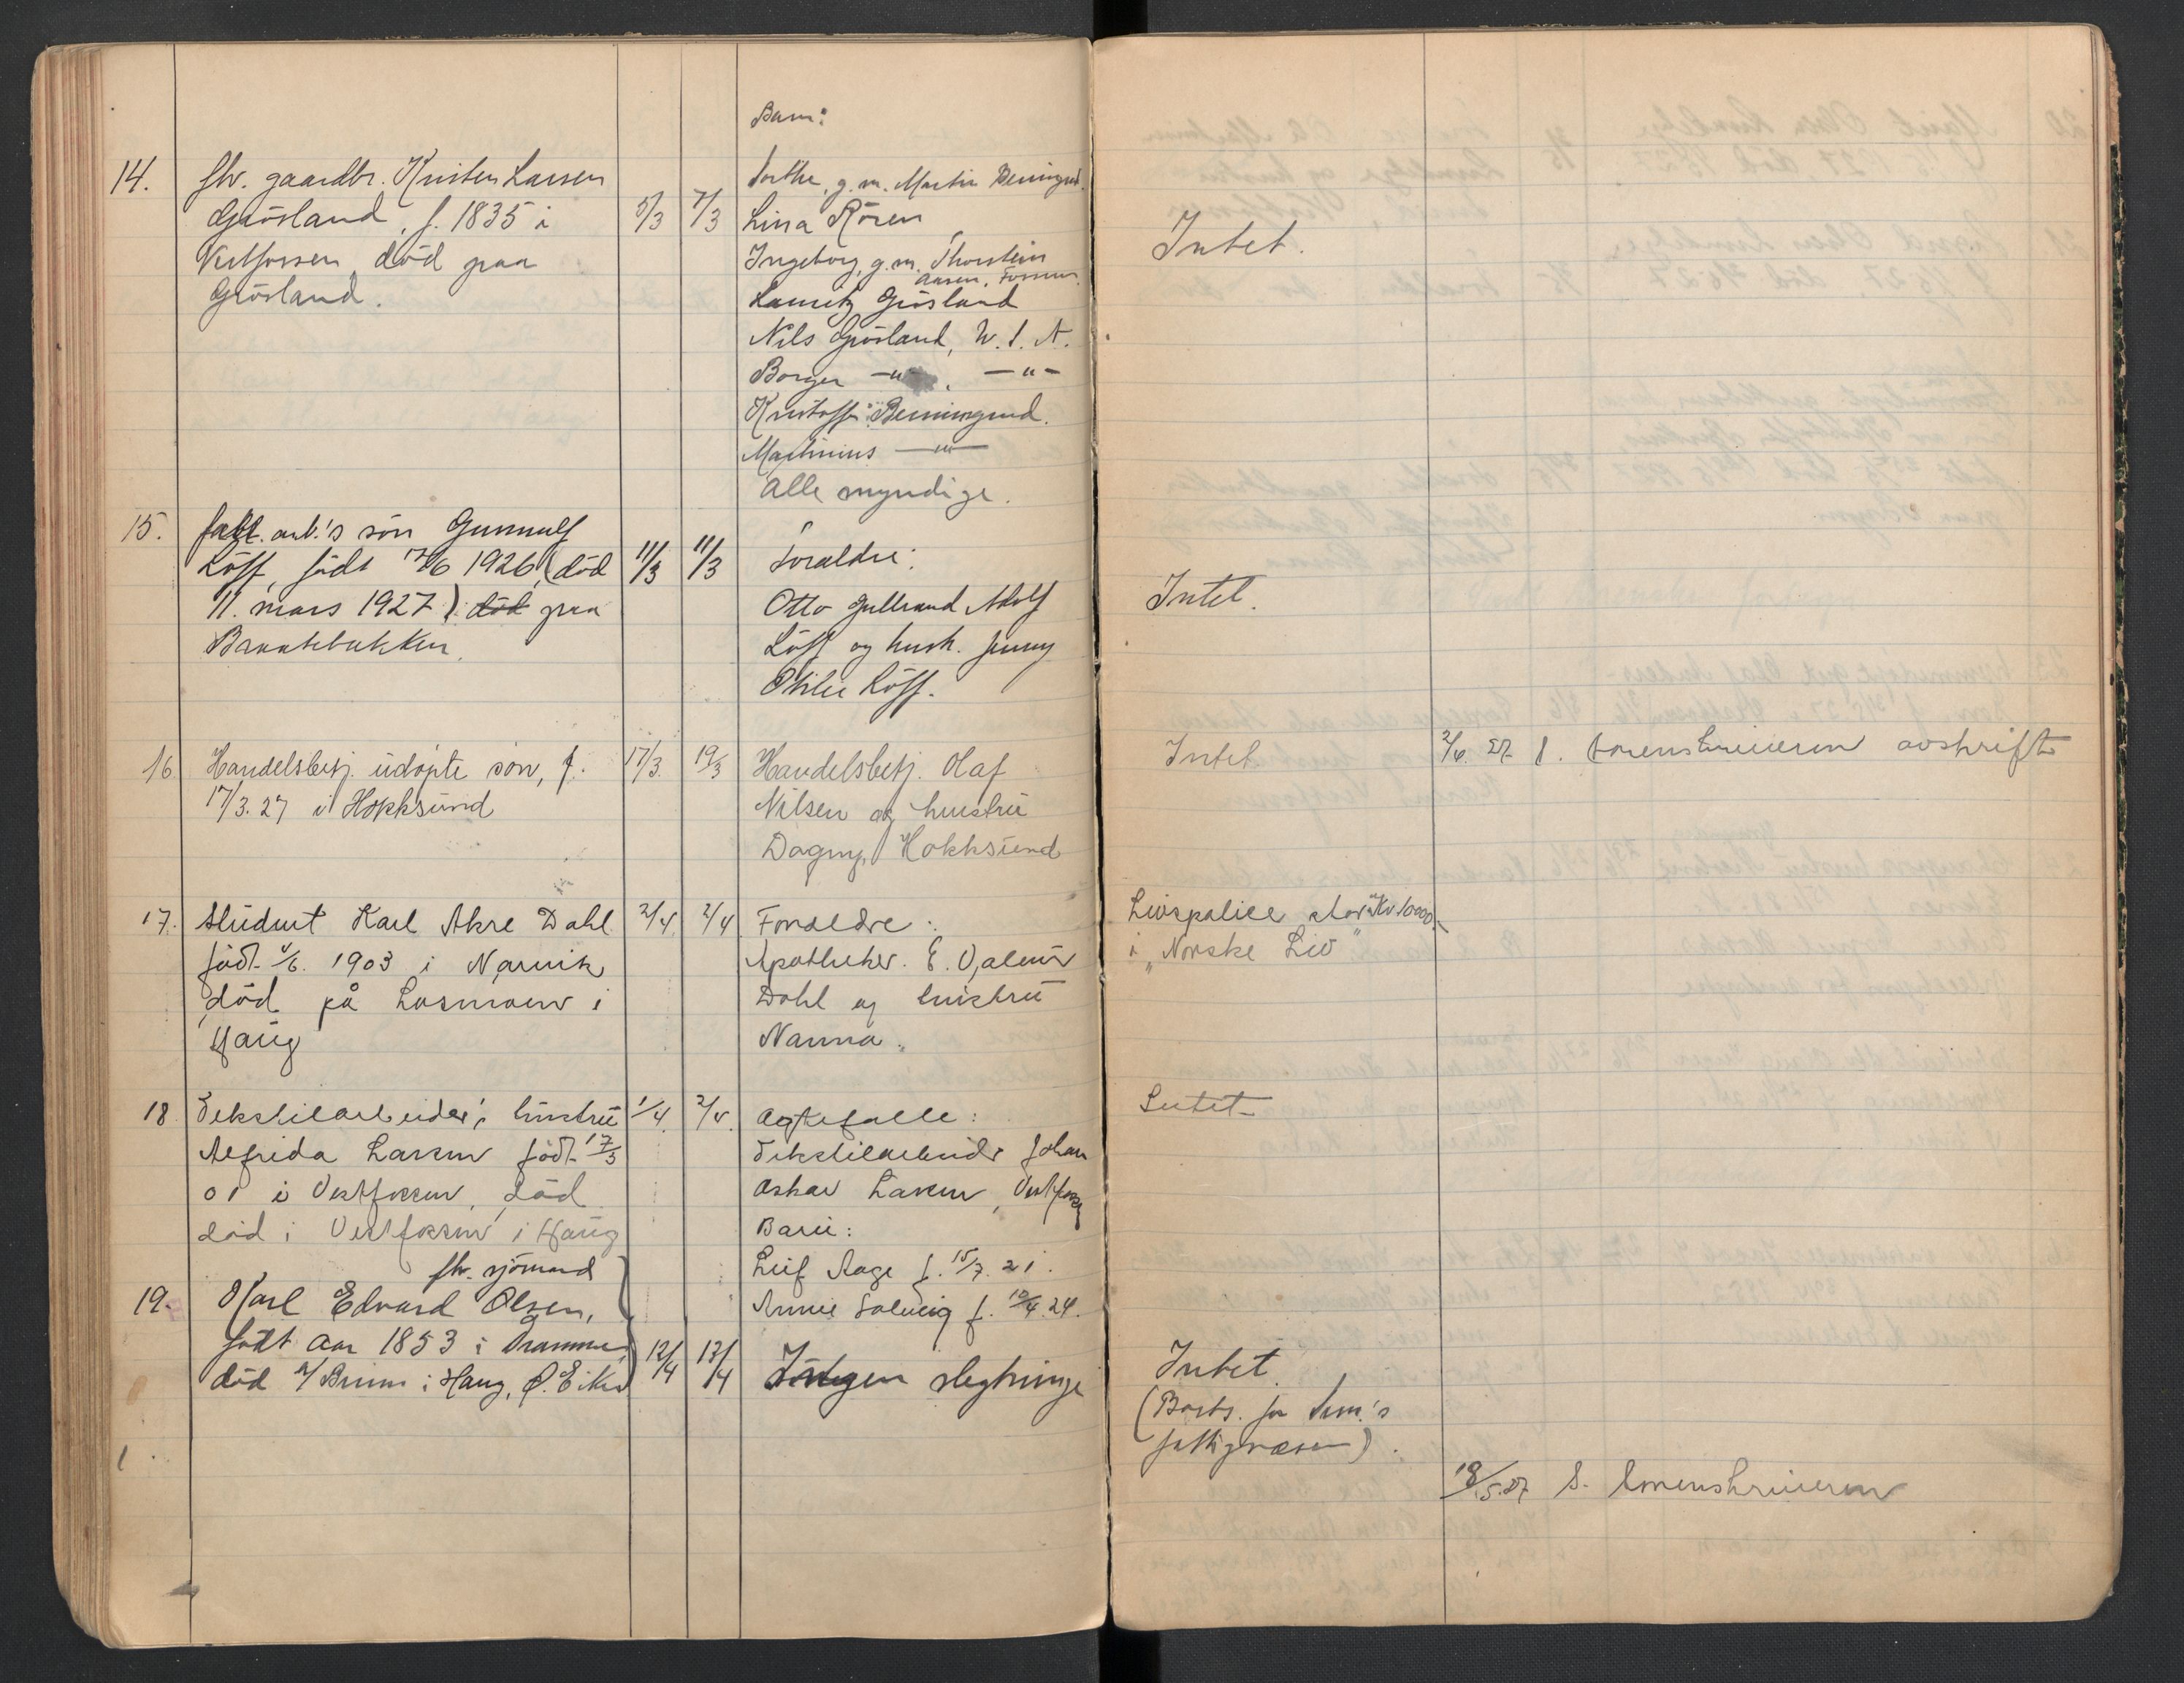 Barn:
14. fhv. gaardbr. Kristen Larsen
Grösland, f. 1835 i
Vestfossen, död paa
Grösland.
5/3 7/3
Dorthe, g. m. Martin Bermingrud.
Lina Rören
Ingeborg, g. m. Thorstein
Aasen, Fossum.
Lauritz Grösland
Nils Grösland, U. S. A.
Borger —"— , —"—
Kristoffer Bermingrud.
Martinius —"—
Alle myndige.
Intet.
15. fabr. arb.'s sön Gunnulf
Löff, födt 17/6 1926, (död
11. mars 1927) död paa
11/3 11/3
Foraldre:
Otto Gulbrand Adolf
Löff og hustr. Jenny
Otilie Löff.
Intet.
16. Handelsbetj. udöpte sön, f.
17/3.27 i Hokksund
17/3. 19/3
Handelsbetj. Olaf
Nilsen og hustru
Dagny, Hokksund
Intet
2/6. 27. S. sorenskriveren avskrift
17. Student Karl Akre Dahl
födt 4/6. 1903 i Narvik
död på Losmoen i
Haug
2/4. 2/4
Foraldre:
Apotheker. E.
Dahl og hustru
Nanna.
Livspolice stor Kr 10000,-
i "Norske Liv"
18. Tekstilarbeider's hustru
Alfrida Larsen födt 17/3
01 i Vestfossen, död
död i Vestfossen i Haug
1/4. 2/4.
Ægtefælle:
Tekstilarbeider Johan
Oskar Larsen, Vestfossen
Barn:
Leif Aage f. 15/7. 21.
Annie Solveig f. 10/4. 24.
Intet
fhv. sjömand
19. Karl Edvard Olsen,
födt aar 1853 i Drammen,
död i Haug, Ö. Eiker
12/4 13/4
Ingen slegtninge
Intet.
(Borts. for Dram.'s
fattigvæsen).
18/5.27 S. Sorenskriveren